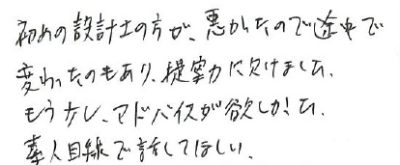 初めの設計士の方が、悪かったので途中で
変わったのもあり、提案力に欠けました。
もう少し、アドバイスが欲しかった。
素人目線で話してほしい。